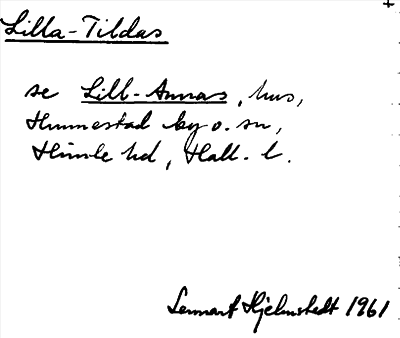 Lilla-Tildas
se Lill-Annas, hus,
Hunnestad by o. sn,
Himle hd, Hall. l.
Lennart Hjelmstedt 1961